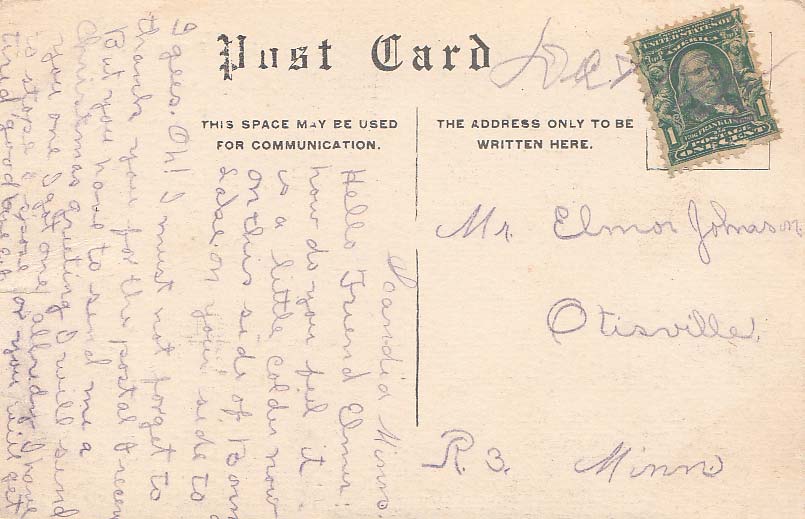 Post Card
THIS SPACE MAY BE USED
FOR COMMUNICATION.
THE ADDRESS ONLY TO BE
WRITTEN HERE.
UNITED STATES OF
AMERICA
1 FRANKLIN 1
POSTAGE
ONE CENT
Mr. Elmor Johnson
Otisville.
R. 3. Minn
Scandia Minn.
Hello Friend Elmer.
how do you feel it
is a little colder now
on this side of Bonn
Lake. on your side to
I gees. Oh! I must not forget to
thank you for the postal I receiv
But you have to send me a
Christmas greeting I will send
you one I got one allredy I have
to stop I spose or you will get
tired good